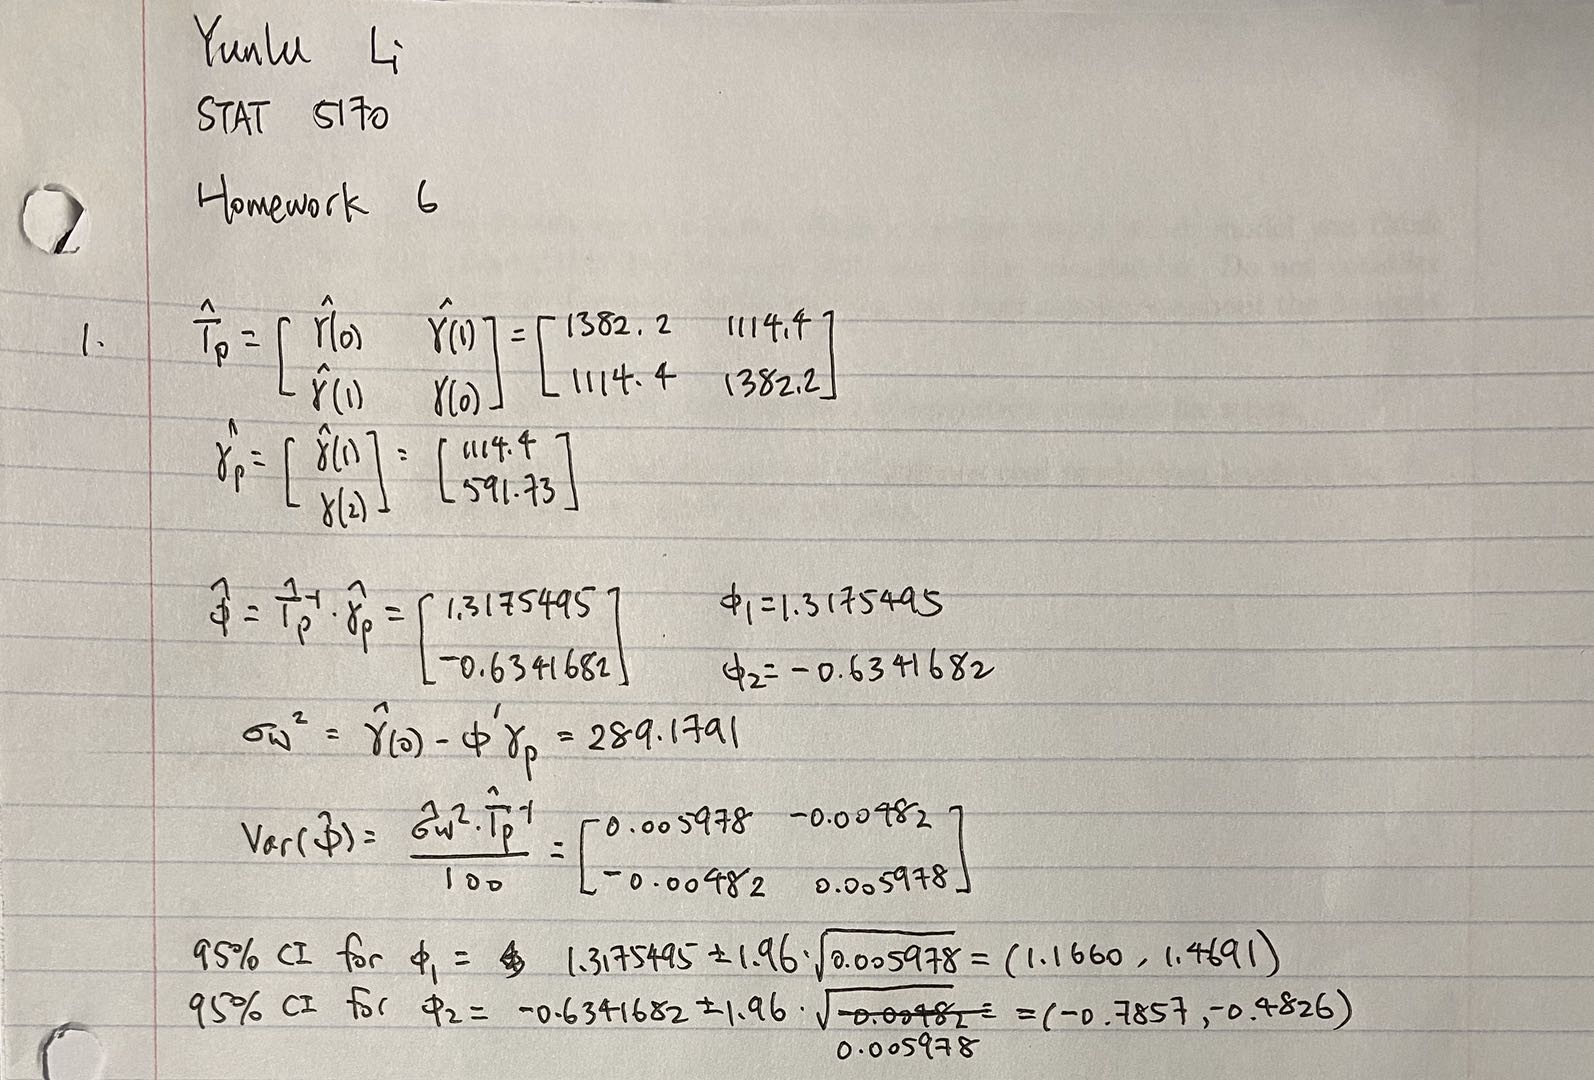 Yunlu Li
STAT 5170
Homework 6
1. Γ̂p = [ γ̂(0) γ̂(1) ; γ̂(1) γ(0) ] = [ 1382.2 1114.4 ; 1114.4 1382.2 ]
γ̂p = [ γ̂(1) ; γ(2) ] = [ 1114.4 ; 591.73 ]
ϕ̂ = Γ̂p⁻¹ · γ̂p = [ 1.3175495 ; -0.6341682 ] ϕ1 = 1.3175495
ϕ2 = -0.6341682
σw² = γ̂(0) - ϕ'γp = 289.1791
Var(ϕ̂) = σ̂w² · Γ̂p⁻¹ / 100 = [ 0.005978 -0.00482 ; -0.00482 0.005978 ]
95% CI for ϕ1 = 1.3175495 ± 1.96 · √0.005978 = (1.1660, 1.4691)
95% CI for ϕ2 = -0.6341682 ± 1.96 · √-0.00482 = (-0.7857, -0.4826)
0.005978